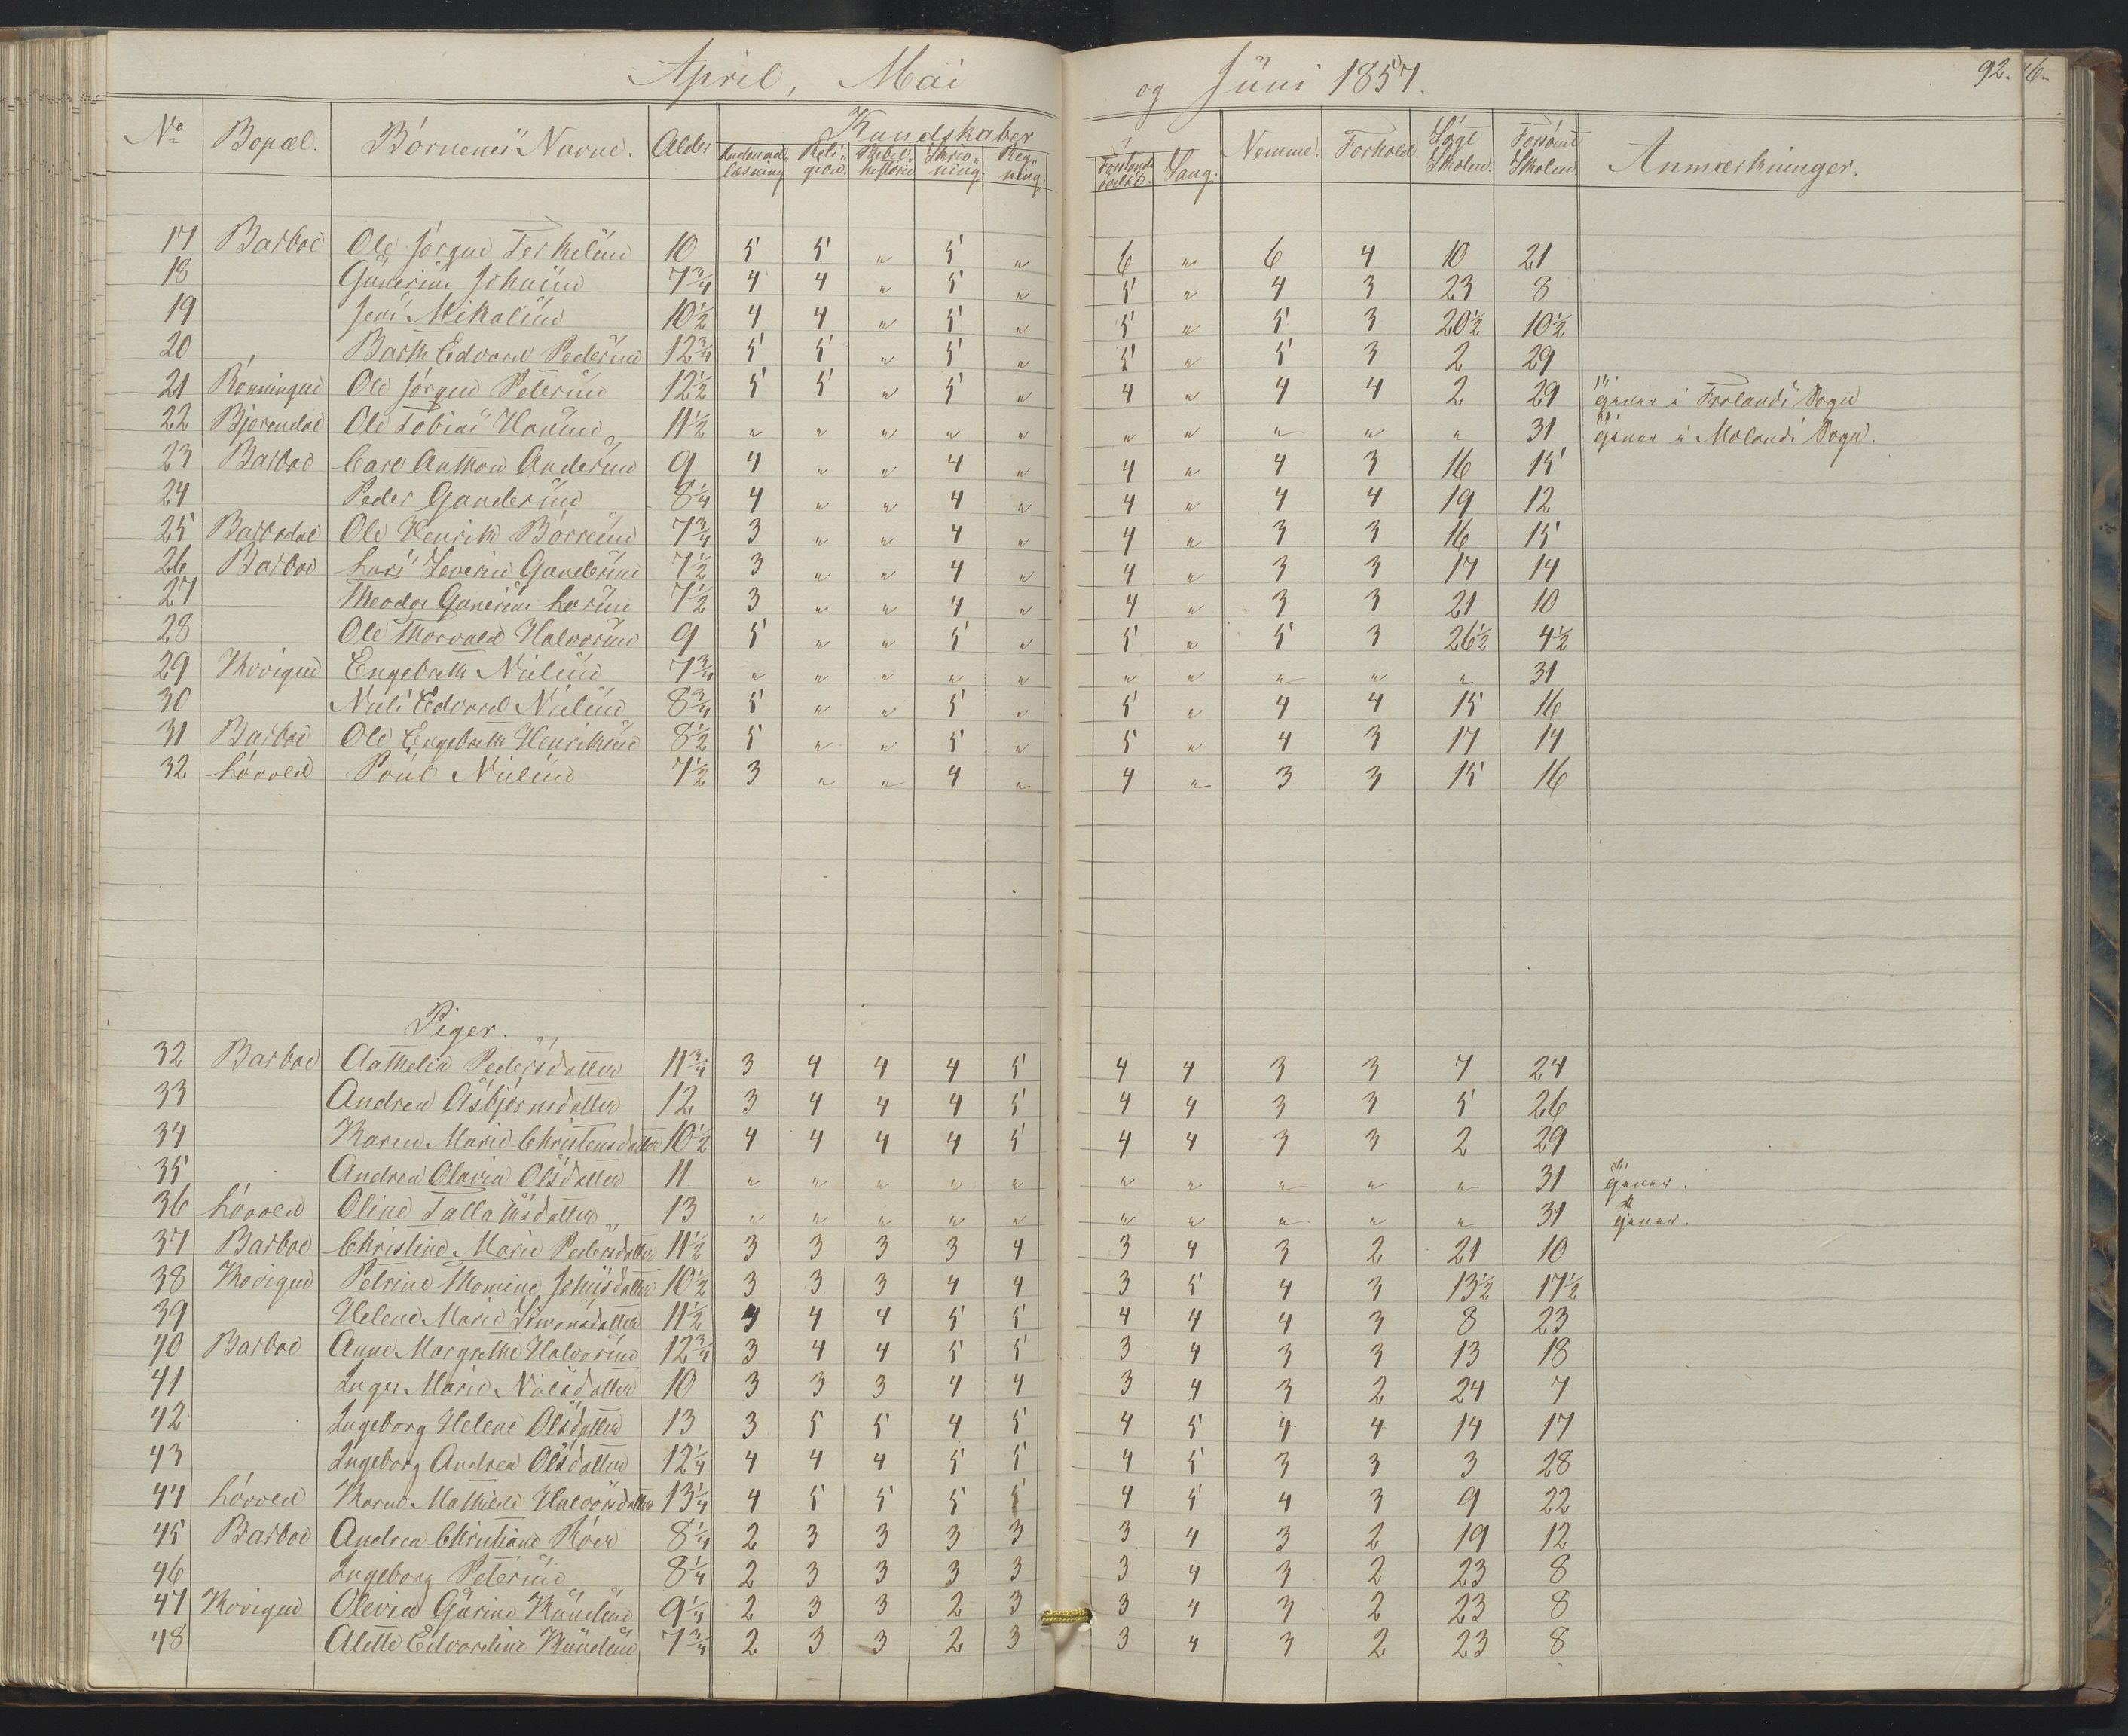 April, Mai og Juni 1857. 92.
No Bopæl. Børnenes Navne. Alder Kundskaber Nemme. Forhold. Søgt Skolen. Forsømt Skolen. Anmærkninger.
Indenad-læsning Reli-gion. Bibel-historie Skriv-ning. Reg-ning. Forstands-øvelse. Sang.
17 Barboe Ole Jørgen Terkelsen 10 5 5 " 5 " 6 " 6 4 10 21
18 Gunerius Johnsen 7 3/4 4 4 " 5 " 5 " 4 3 23 8
19 Jens Mikalsen 10 1/2 4 4 " 5 " 5 " 5 3 20 1/2 10 1/2
20 Barth Edvard Pedersen 12 3/4 5 5 " 5 " 5 " 5 3 2 29
21 Rønningen Ole Jørgen Petersen 12 1/2 5 5 " 5 " 4 " 4 4 2 29 tjener i Frolands Sogn
22 Bjørendal Ole Tobias Hansen 11 1/2 " " " " " " " " " " 31 tjener i Molands Sogn.
23 Barboe Carl Anthon Andersen 9 4 " " 4 " 4 " 4 3 16 15
24 Peder Gundersen 8 1/4 4 " " 4 " 4 " 4 4 19 12
25 Barbodal Ole Henrik Børresen 7 3/4 3 " " 4 " 4 " 3 3 16 15
26 Barboe Lars Severin Gundersen 7 1/2 3 " " 4 " 4 " 3 3 17 14
27 Theodor Gunerius Larsen 7 1/2 3 " " 4 " 4 " 3 3 21 10
28 Ole Thorvald Halvorsen 9 5 " " 5 " 5 " 5 3 26 1/2 4 1/2
29 Kovigen Engebreth Nielsen 7 3/4 " " " " " " " " " " 31
30 Niels Edvard Nielsen 8 3/4 5 " " 5 " 5 " 4 4 15 16
31 Barboe Ole Engebreth Henriksen 8 1/2 5 " " 5 " 5 " 4 3 17 14
32 Løvold Poul Nielsen 7 1/2 3 " " 4 " 4 " 3 3 15 16
Piger.
32 Barboe Aathelia Pedersdatter 11 3/4 3 4 4 4 5 4 4 3 3 7 24
33 Andrea Asbjørnsdatter 12 3 4 4 4 5 4 4 3 3 5 26
34 Karen Marie Christensdatter 10 1/2 4 4 4 4 5 4 4 3 3 2 29
35 Andrea Olavia Olsdatter 11 " " " " " " " " " " 31 tjener.
36 Løvold Oline Tallaksdatter 13 " " " " " " " " " " 31 tjener.
37 Barboe Christine Marie Pedersdatter 11 1/2 3 3 3 3 4 3 4 3 2 21 10
38 Kovigen Petrine Thomine Johnsdatter 10 1/2 3 3 3 4 4 3 5 4 3 13 1/2 17 1/2
39 Helene Marie Simonsdatter 11 1/2 4 4 4 5 5 4 4 4 3 8 23
40 Barboe Anne Margrethe Halvorsen 12 3/4 3 4 4 5 5 3 4 3 3 13 18
41 Inger Marie Nielsdatter 10 3 3 3 4 4 3 4 3 2 24 7
42 Ingeborg Helene Olsdatter 13 3 5 5 4 5 4 5 4 4 14 17
43 Ingeborg Andrea Olsdatter 12 1/4 4 4 4 5 5 4 5 3 3 3 28
44 Løvold Karen Mathilde Halvorsdatter 13 1/4 4 5 5 5 5 4 5 4 3 9 22
45 Barboe Andrea Christiane Röer 8 1/4 2 3 3 3 3 3 4 3 2 19 12
46 Ingeborg Petersen 8 1/4 2 3 3 3 3 3 4 3 2 23 8
47 Kovigen Olevia Gurine Knudsen 9 1/4 2 3 3 2 3 3 4 3 2 23 8
48 Alette Edvardine Knudsen 7 3/4 2 3 3 2 3 3 4 3 2 23 8